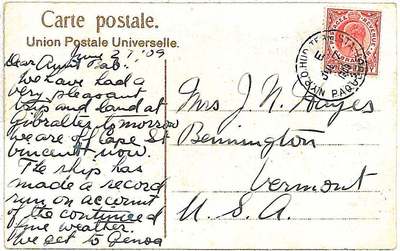 Carte postale.
Union Postale Universelle.
June 27 '09
Dear Aunt
We have had a
very pleasant
trip and land at
Gibralter tomorrow
we are of Cape St
Vincent now.
The ship has
made a record
run on account
of the continued
fine weather.
We get to Genoa
Mrs J. N. Hayes
Bennington
Vermont
U. S. A.